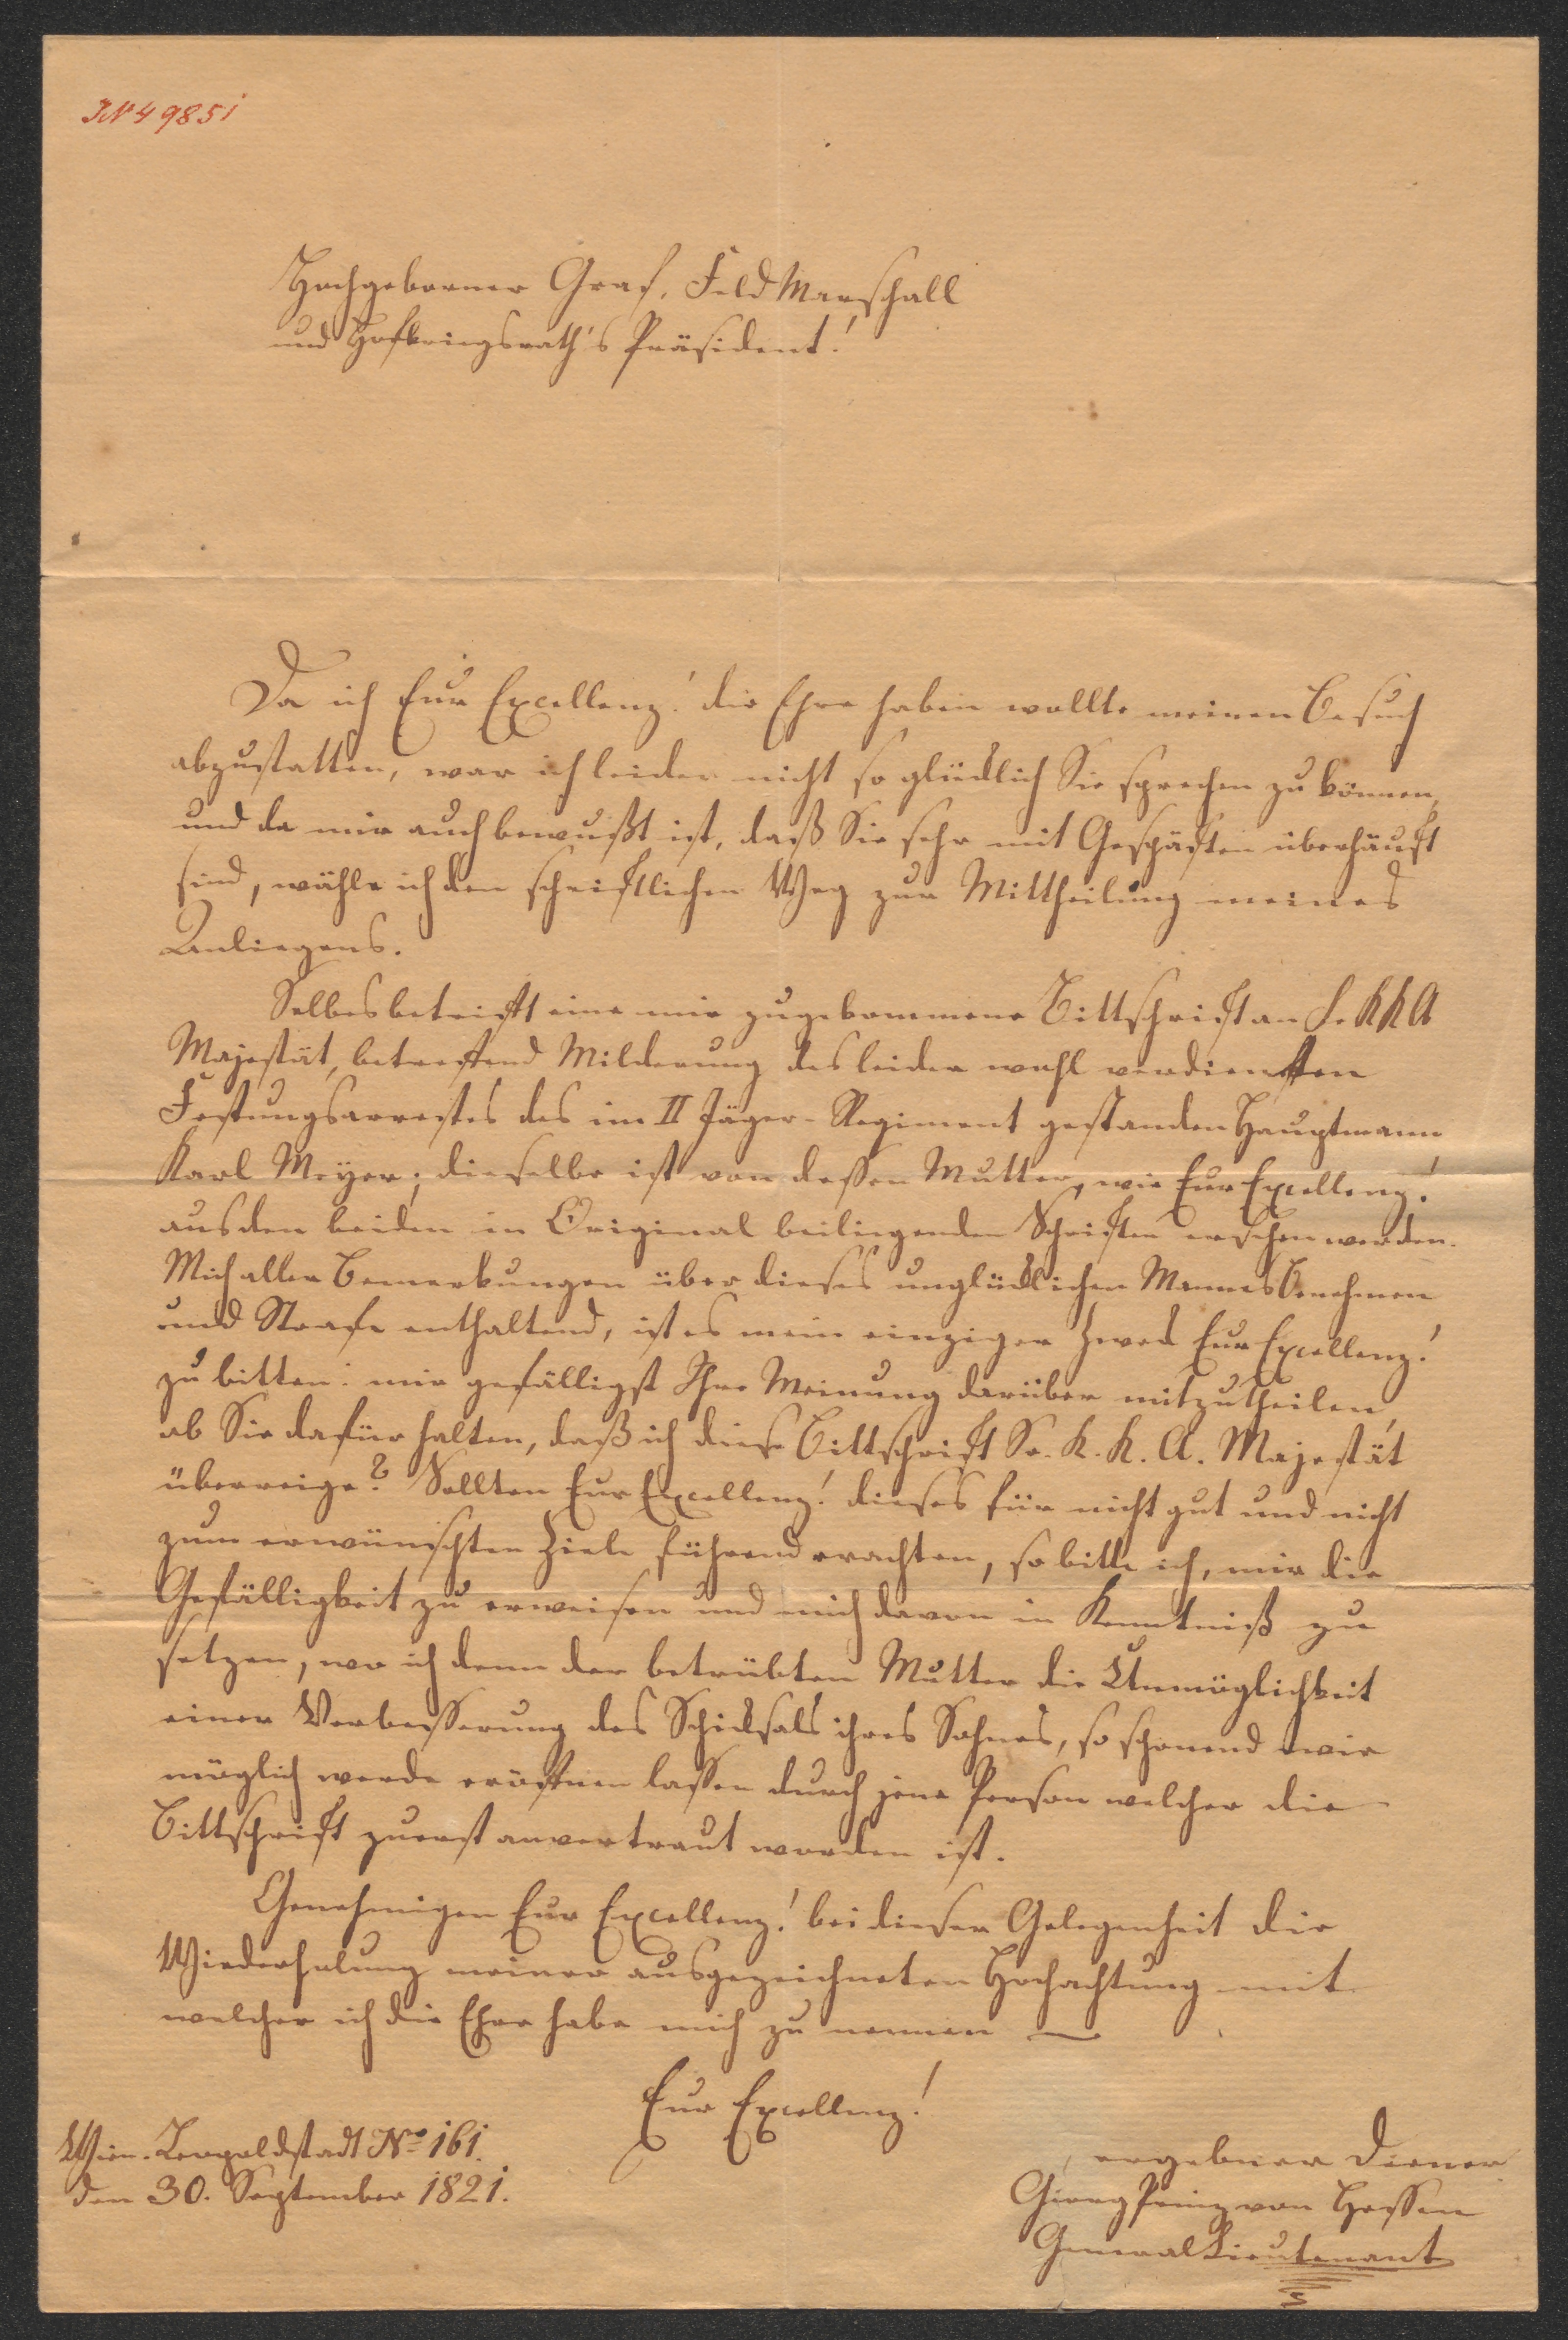 JN 49851
Hochgeborner Graf, FeldMarschall
und Hofkriegsrath's Präsident!
Da ich Eur Excellenz! die Ehre haben wollte meinen Besuch
abzustatten, war ich leider nicht so glücklich Sie sprechen zu können,
und da mir auch bewußt ist, daß Sie sehr mit Geschäften überhäuft
sind, wähle ich den schriftlichen Weg zur Mittheilung meines
Anliegens.
Selbes betrifft eine mir zugekommene Bittschrift an S. K K A
Majestät, betreffend Milderung des leider wohl verdienten
Festungsarrestes des im II Jäger-Regiment gestanden Hauptmann
Karl Meyer; dieselbe ist von dessen Mutter, wie Eur Excellenz!
aus den beiden in Original beiliegenden Schriften ersehen werden.
Mich aller Bemerkungen über dieses unglücklichen Mannes Benehmen
und Strafe enthaltend, ist es mein einziger Zweck Eur Excellenz!
zu bitten: mir gefälligst Ihre Meinung darüber mitzutheilen,
ob Sie dafür halten, daß ich diese Bittschrift Sr. K. K. A. Majestät
überreiche? Sollten Eur Excellenz! dieses für nicht gut und nicht
zum erwünschten Ziele führend erachten, so bitte ich, mir die
Gefälligkeit zu erweisen und mich davon in Kenntniß zu
setzen, wo ich denn der betrübten Mutter die Unmöglichkeit
einer Verbesserung des Schicksals ihres Sohnes, so schonend wie
möglich werde eröffnen lassen durch jene Person welcher die
Bittschrift zuerst anvertraut worden ist.
Genehmigen Eur Excellenz! bei dieser Gelegenheit die
Wiederholung meiner ausgezeichneten Hochachtung mit
welcher ich die Ehre habe mich zu nennen —
Eur Excellenz!
Wien. Leopoldstadt No 161.
den 30. September 1821.
ergebner Diener
Georg Prinz von Hessen
General Lieutenant